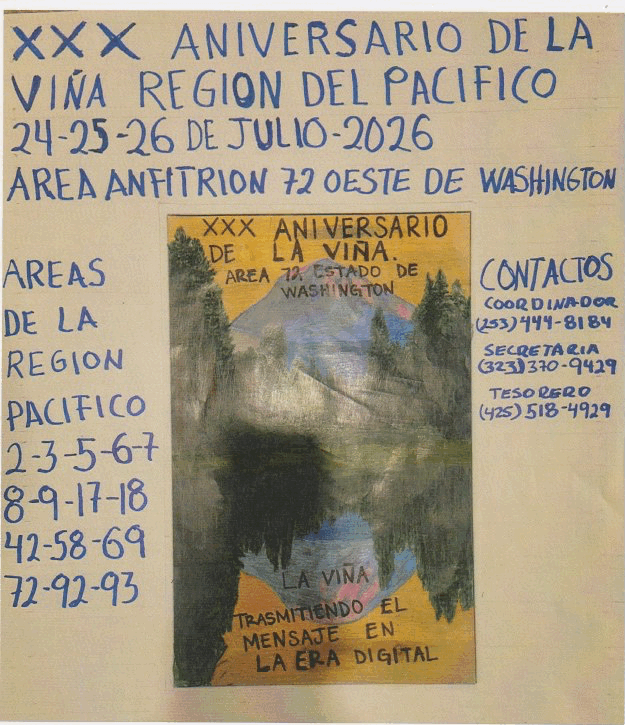 XXX ANIVERSARIO DE LA
VIÑA REGION DEL PACIFICO
24-25-26 DE JULIO-2026
AREA ANFITRION 72 OESTE DE WASHINGTON
AREAS
DE LA
REGION
PACIFICO
2-3-5-6-7
8-9-17-18
42-58-69
72-92-93
XXX ANIVERSARIO
DE LA VIÑA.
AREA 72 ESTADO DE
WASHINGTON
LA VIÑA
TRASMITIENDO EL
MENSAJE EN
LA ERA DIGITAL
CONTACTOS
COORDINADOR
(253) 444-8184
SECRETARIA
(323) 370-9429
TESORERO
(425) 518-4929